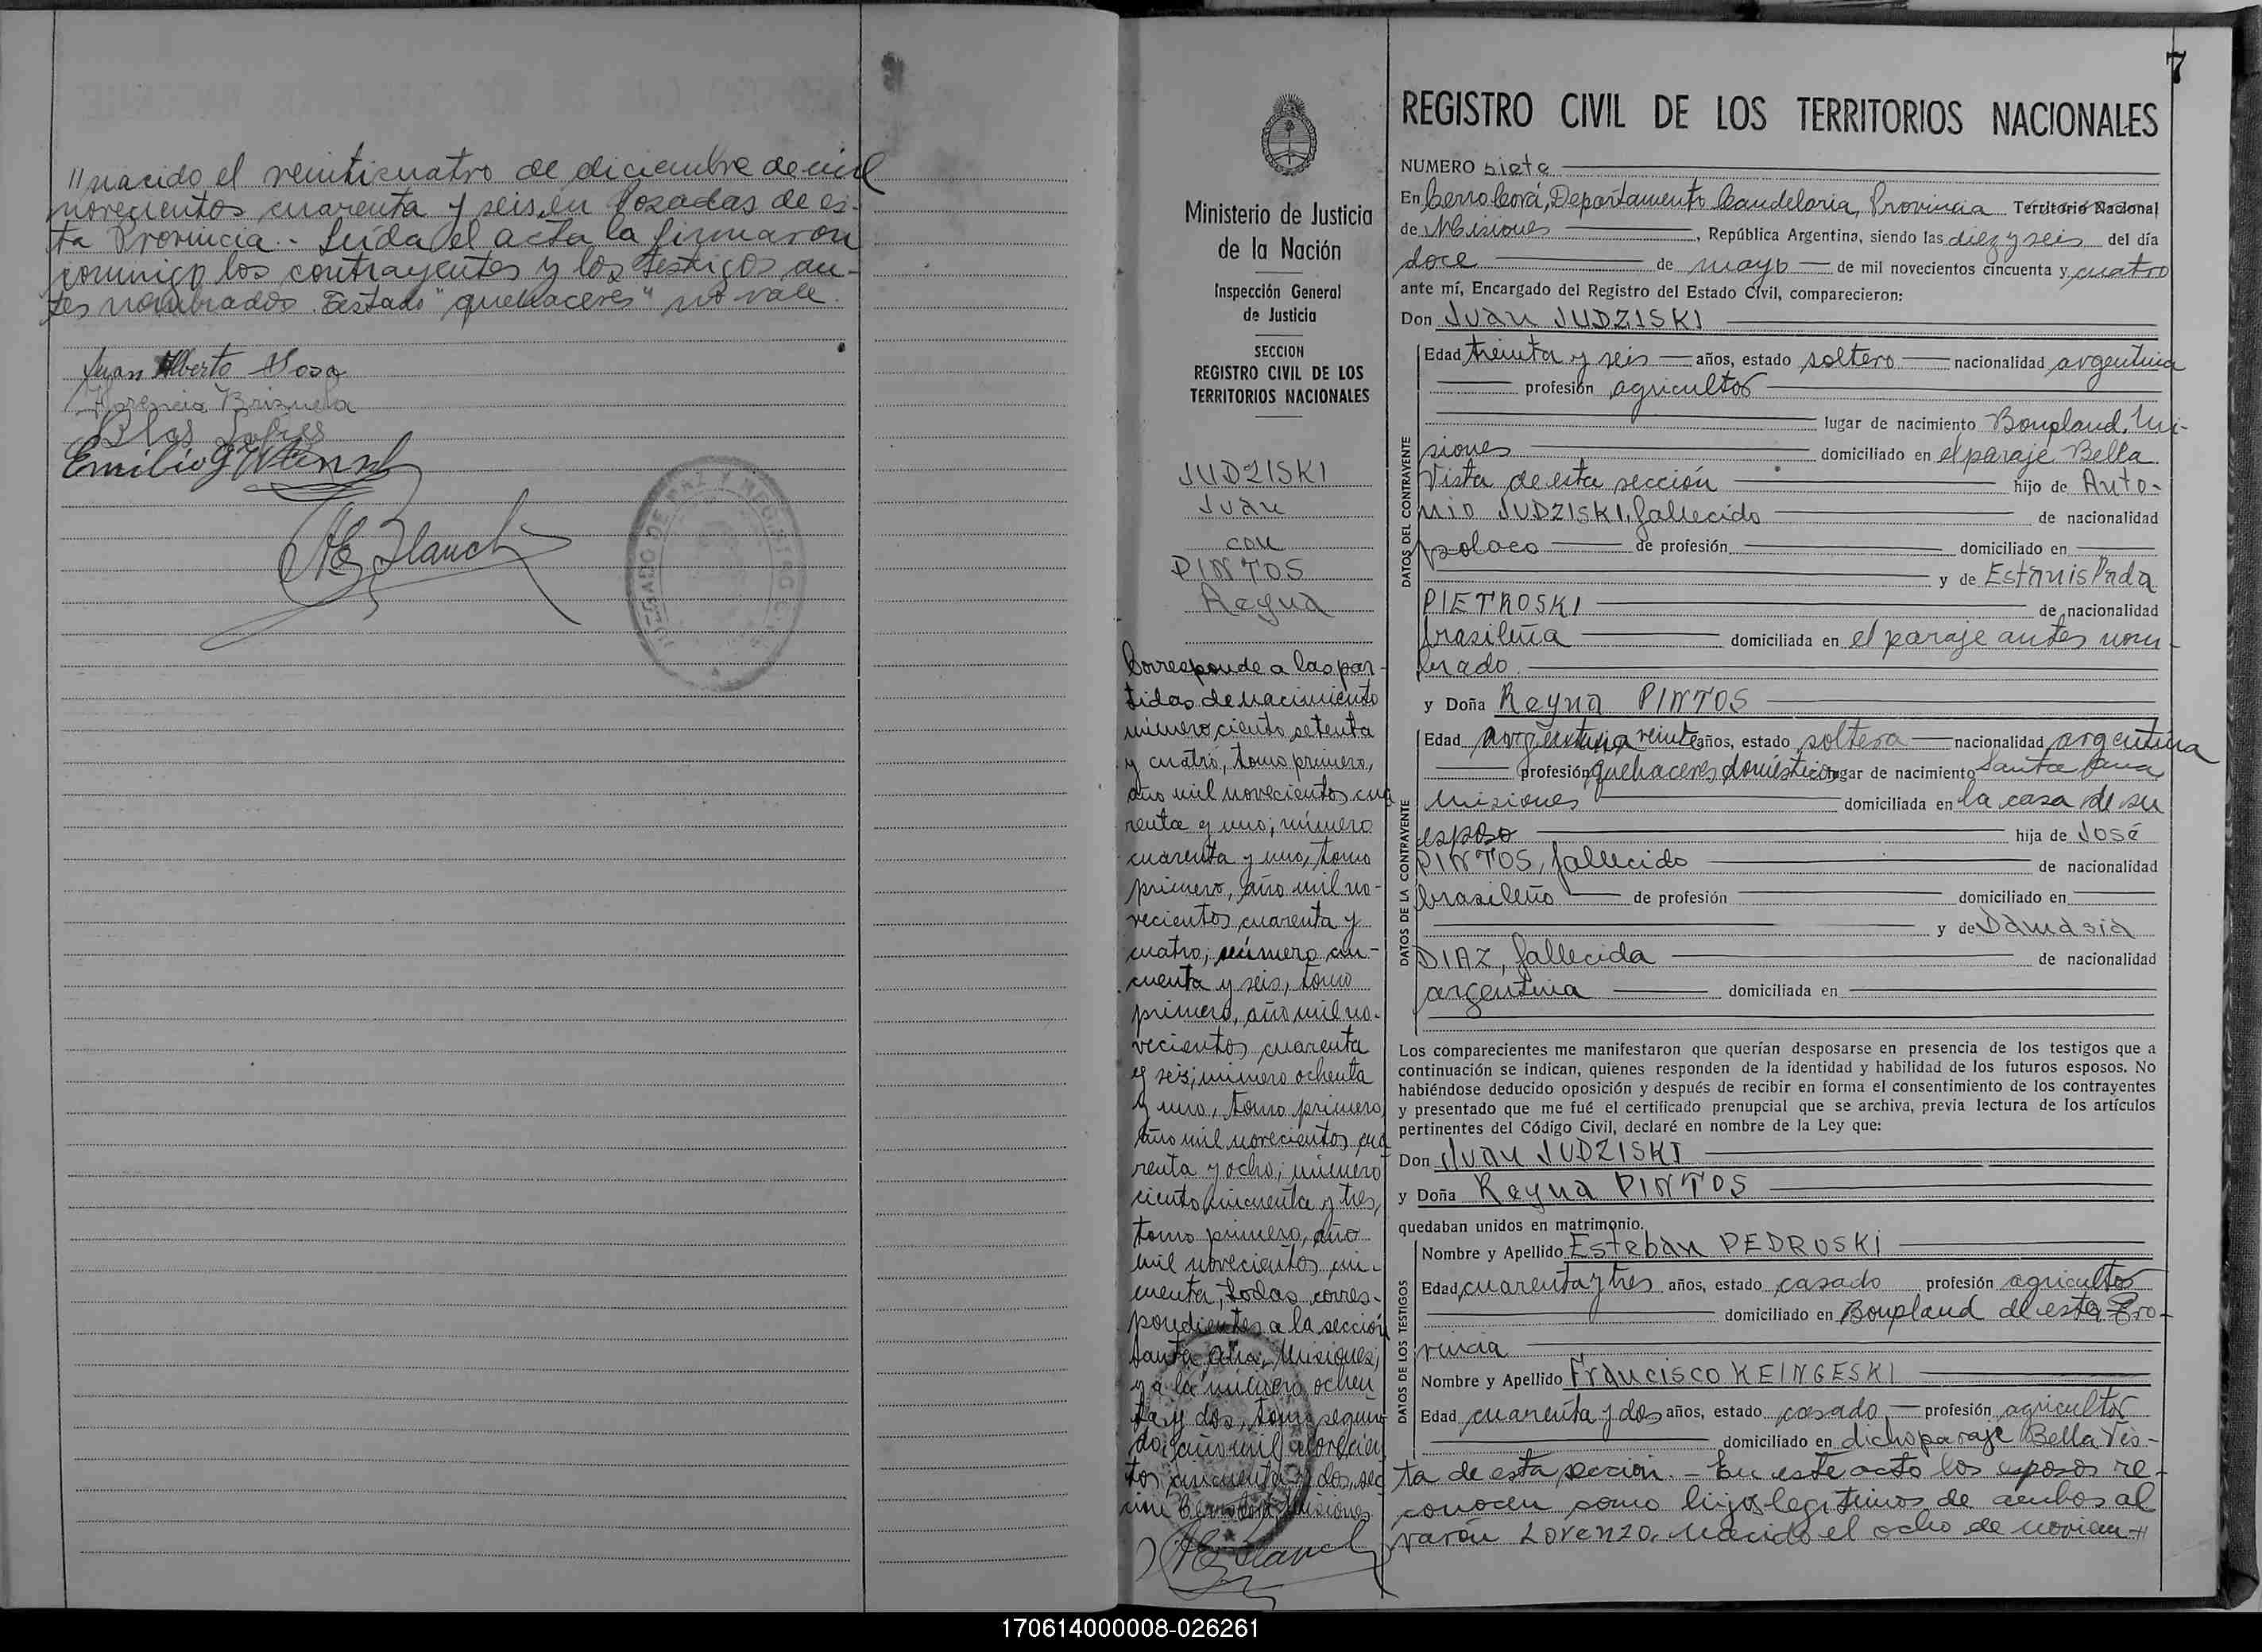 "nacido el veinticuatro de diciembre de mil
novecientos cuarenta y seis, en Posadas de es-
ta Provincia.- Leída el acta la firmaron
conmigo los contrayentes y los testigos an-
tes nombrados. Testado "quehaceres" no vale.
Juan Alberto Sosa
Florencia Brizuela
Blas
Emilio
JUZGADO DE PAZ Y
7
REGISTRO CIVIL DE LOS TERRITORIOS NACIONALES
Ministerio de Justicia
de la Nación
Inspección General
de Justicia
SECCION
REGISTRO CIVIL DE LOS
TERRITORIOS NACIONALES
JUDZISKI
Juan
con
PINTOS
Reyna
Corresponde a las par-
tidas de nacimiento
número ciento setenta
y cuatro, tomo primero,
año mil novecientos cua
renta y uno; número
cuarenta y uno, tomo
primero, año mil no-
vecientos cuarenta y
cuatro; número cin-
cuenta y seis, tomo
primero, año mil no-
vecientos cuarenta
y seis; número ochenta
y uno, tomo primero,
año mil novecientos cua
renta y ocho; número
ciento cincuenta y tres,
tomo primero, año
mil novecientos cin-
cuenta, todas corres-
pondientes a la sección
Santa Ana, Misiones;
y a la número ochen
ta y dos, tomo segun-
do, año mil novecien
tos cincuenta y dos, sec
ción Cerro Corá, Misiones
NUMERO siete
En Cerro Corá, Departamento Candelaria, Provincia Territorio Nacional
de Misiones, República Argentina, siendo las diez y seis del día
doce de mayo de mil novecientos cincuenta y cuatro
ante mí, Encargado del Registro del Estado Civil, comparecieron:
Don Juan JUDZISKI
DATOS DEL CONTRAYENTE
Edad treinta y seis años, estado soltero nacionalidad argentina
profesión agricultor
lugar de nacimiento Bonpland, Mi-
siones domiciliado en el paraje Bella
Vista de esta sección hijo de Anto-
nio JUDZISKI, fallecido de nacionalidad
polaco de profesión domiciliado en
y de Estanislada
PIETROSKI de nacionalidad
brasileña domiciliada en el paraje antes nom-
brado.
y Doña Reyna PINTOS
DATOS DE LA CONTRAYENTE
Edad argentina veinte años, estado soltera nacionalidad argentina
profesión quehaceres domésticos lugar de nacimiento Santa Ana
Misiones domiciliada en la casa de su
esposo hija de José
PINTOS, fallecido de nacionalidad
brasileño de profesión domiciliado en
y de Damasia
DIAZ, fallecida de nacionalidad
argentina domiciliada en
Los comparecientes me manifestaron que querían desposarse en presencia de los testigos que a
continuación se indican, quienes responden de la identidad y habilidad de los futuros esposos. No
habiéndose deducido oposición y después de recibir en forma el consentimiento de los contrayentes
y presentado que me fué el certificado prenupcial que se archiva, previa lectura de los artículos
pertinentes del Código Civil, declaré en nombre de la Ley que:
Don Juan JUDZISKI
y Doña Reyna PINTOS
quedaban unidos en matrimonio.
DATOS DE LOS TESTIGOS
Nombre y Apellido Esteban PEDROSKI
Edad cuarenta y tres años, estado casado profesión agricultor
domiciliado en Bonpland de esta Pro-
vincia
Nombre y Apellido Francisco KEINGESKI
Edad cuarenta y dos años, estado casado profesión agricultor
domiciliado en dicho paraje Bella Vis-
ta de esta sección.- En este acto los esposos re-
conocen como hijos legítimos de ambos al
varón Lorenzo, nacido el ocho de noviem-"
170614000008-026261